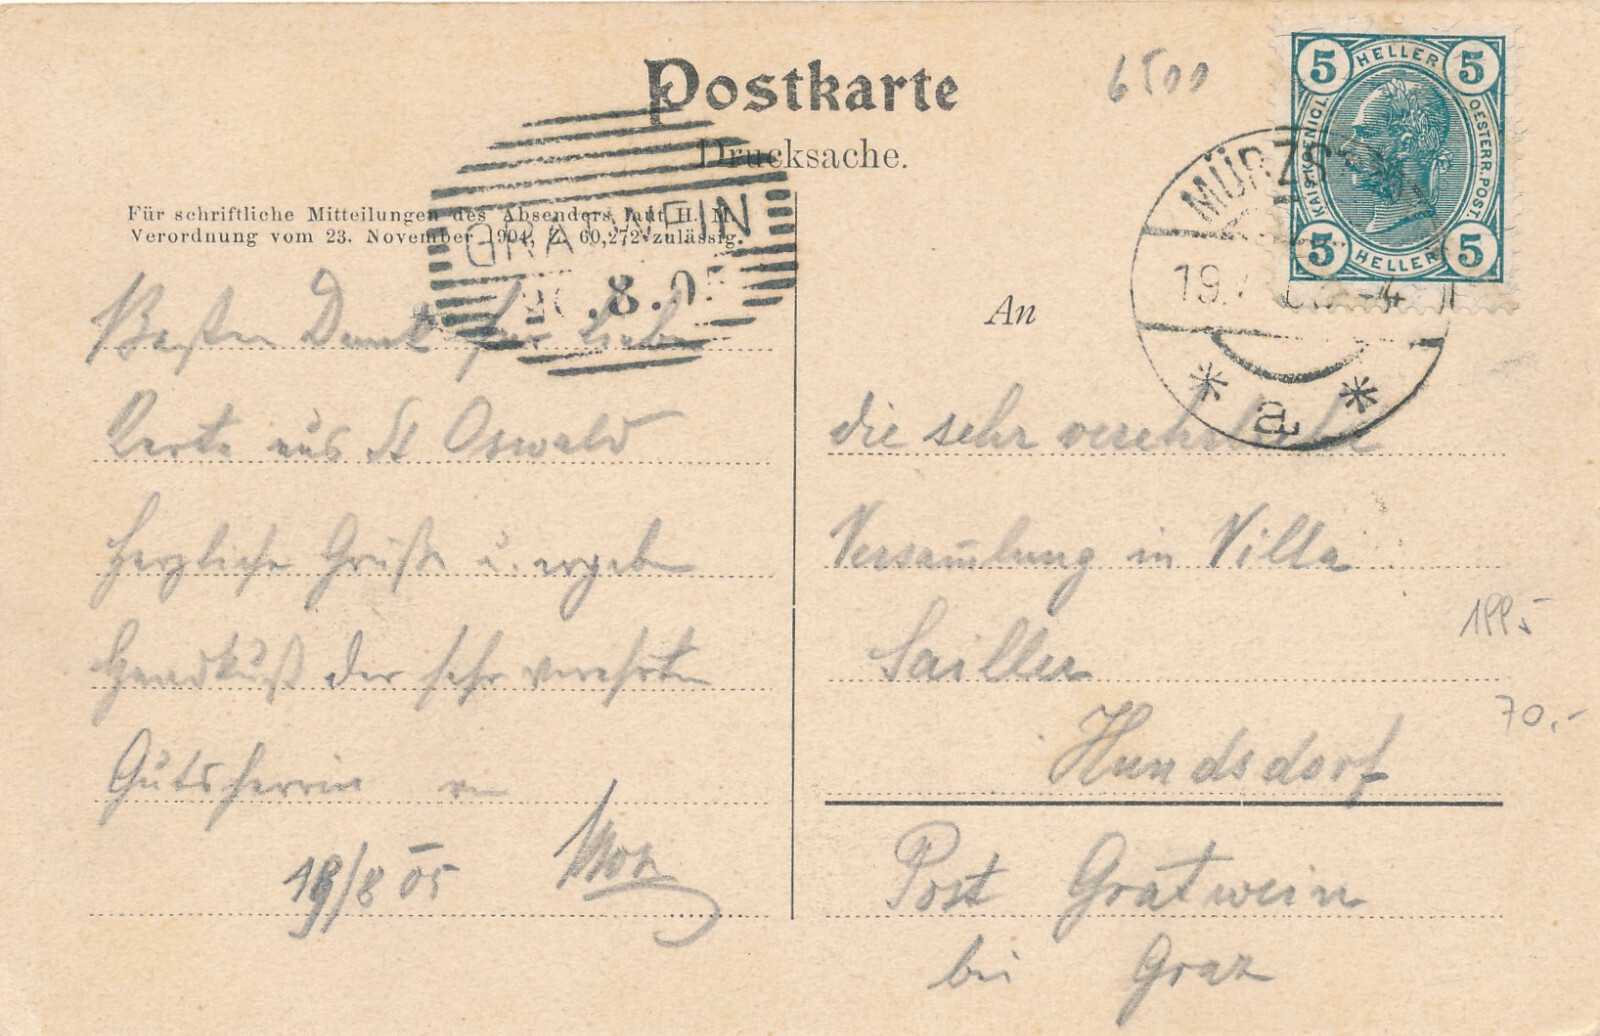 Postkarte
Drucksache.
6500
5 HELLER 5
KAIS. KOENIGL.
OESTERR. POST.
5 HELLER 5
Für schriftliche Mitteilungen des Absenders, laut H. M.
Verordnung vom 23. November 1904, Z. 60,272 zulässig.
GRATWEIN
.8.05
MÜRZS
19.
4
* a *
Besten Dank für liebe
Karte aus St Oswald
Herzliche Grüße u. ergeben
Handkuß der sehr verehrten
Gutsherrin
19/8 05
An
die sehr verehrliche
Versam̅lung in Villa
Sailler
Hundsdorf
Post Gratwein
bei Graz
1995
70.-